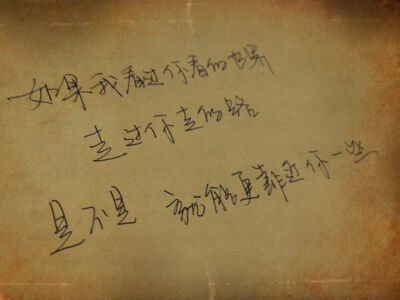 如果我看过你看的世界
走过你走的路
是不是 就能更靠近你一些